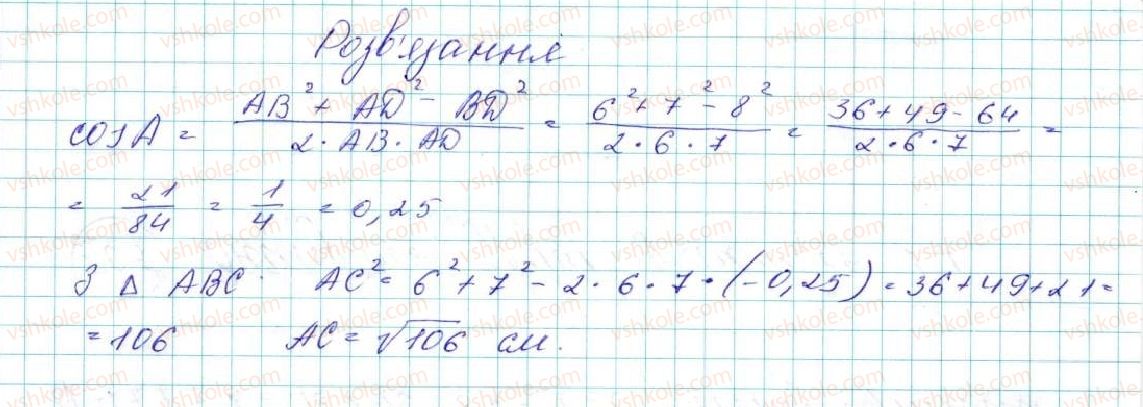 Розв'язання
cos A = (AB² + AD² - BD²) / (2 · AB · AD) = (6² + 7² - 8²) / (2 · 6 · 7) = (36 + 49 - 64) / (2 · 6 · 7) =
= 21/84 = 1/4 = 0,25
З Δ ABC. AC² = 6² + 7² - 2 · 6 · 7 · (-0,25) = 36 + 49 + 21 =
= 106 AC = √106 см.